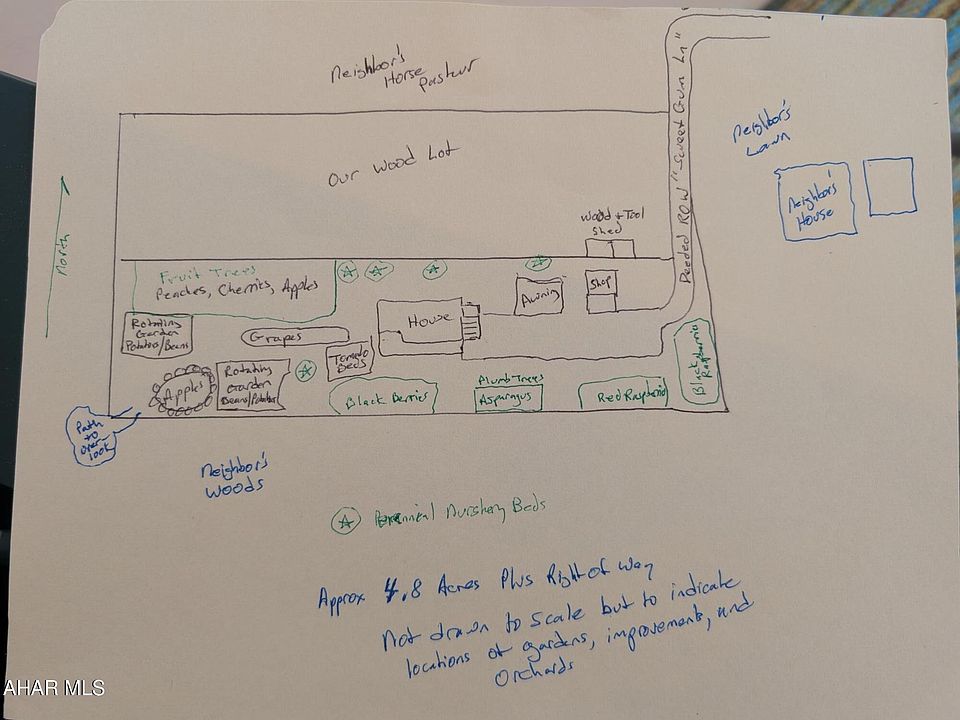 Neighbor's
Horse
Pastuur
Neighbor's
Lawn
Neighbor's
House
Our Wood Lot
Deeded ROW "Sweet Gum Ln"
Wood + Tool
Shed
North
Fruit Trees
Peaches, Cherries, Apples
House
Awning
Shop
Rotating
Garden
Potatoes/Beans
Grapes
Tomato
Beds
Apples
Rotating
Garden
Beans/Potatoes
Black Berries
Plumb Trees
Asparagus
Red Raspberries
Black
Raspberries
Path
to
over
look
Neighbor's
Woods
Perennial Nurshery Beds
Approx 4.8 Acres Plus Right of Way
Not drawn to scale but to indicate
locations of gardens, improvements, and
Orchards
AHAR MLS